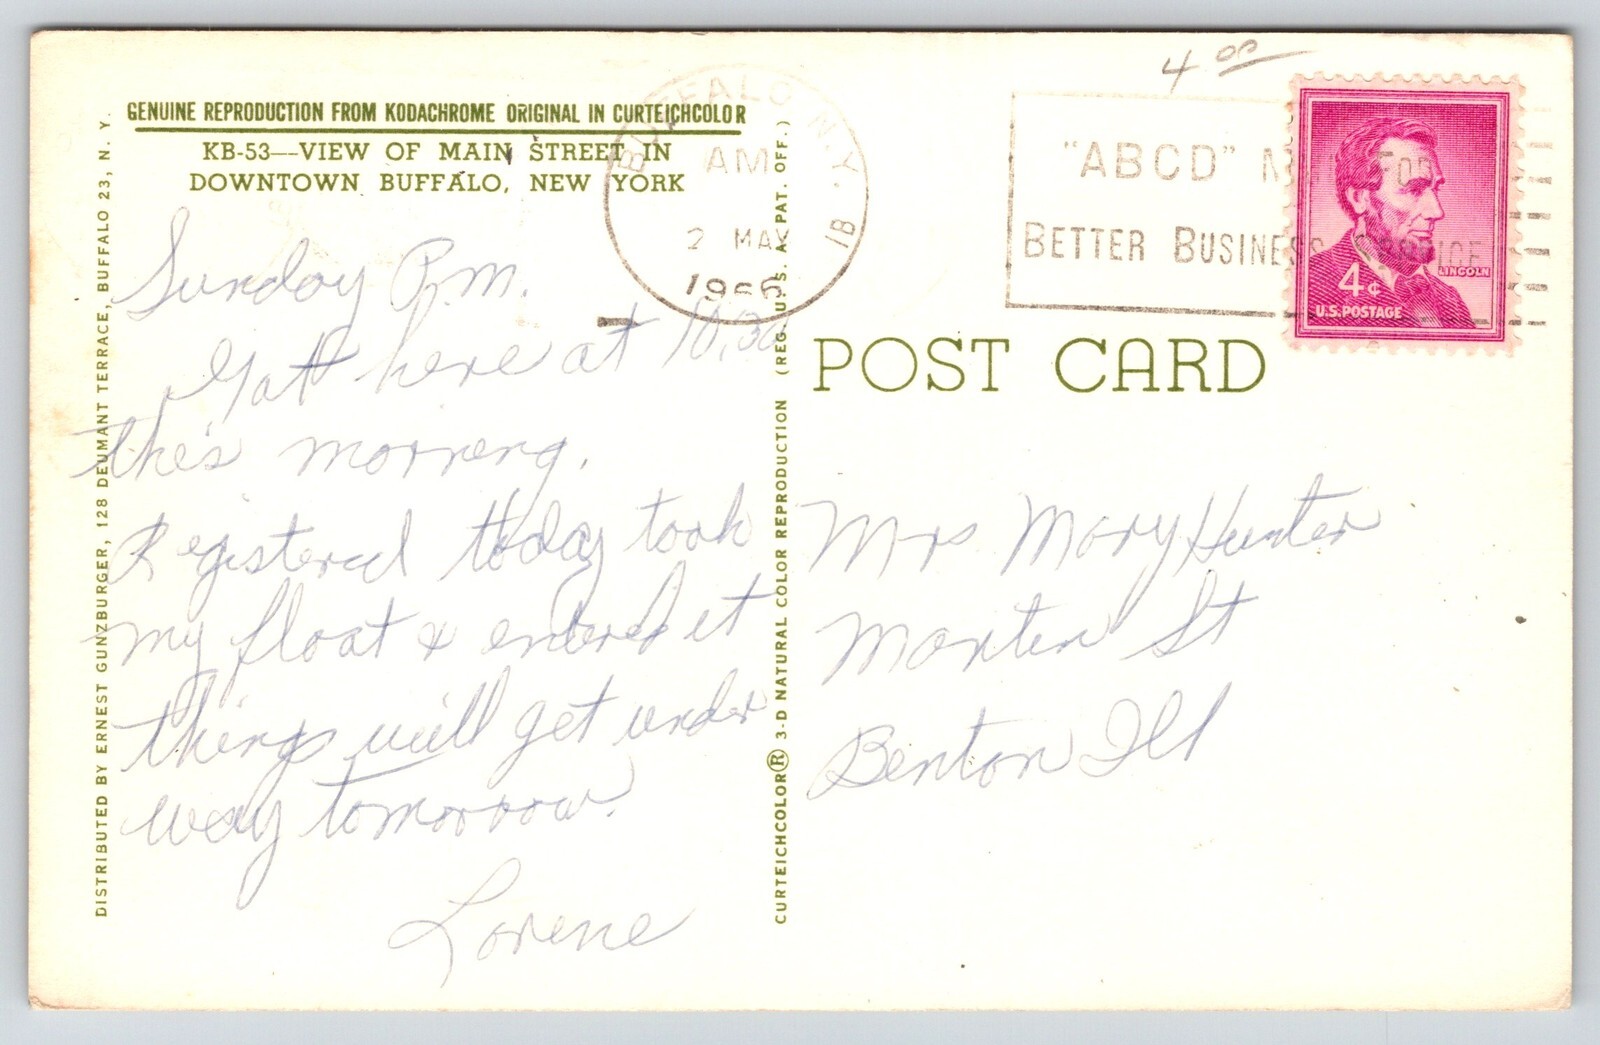 GENUINE REPRODUCTION FROM KODACHROME ORIGINAL IN CURTEICHCOLOR
KB-53—VIEW OF MAIN STREET IN
DOWNTOWN BUFFALO, NEW YORK
Sunday P.M.
Gott here at 10,30
the's morneng.
Registered today took
my float & entered it
things will get under
way tomorrow.
Lorene
DISTRIBUTED BY ERNEST GUNZBURGER, 128 DEUMANT TERRACE, BUFFALO 23, N. Y.
CURTEICHCOLOR® 3-D NATURAL COLOR REPRODUCTION (REG. U. S. A. PAT. OFF.)
BUFFALO, N.Y. 18
AM
2 MAY
1966
4 00
"ABCD" FOR
BETTER BUSINESS SERVICE
LINCOLN
4¢
U.S. POSTAGE
POST CARD
Mrs Mary Hunter
St
Benton Ill